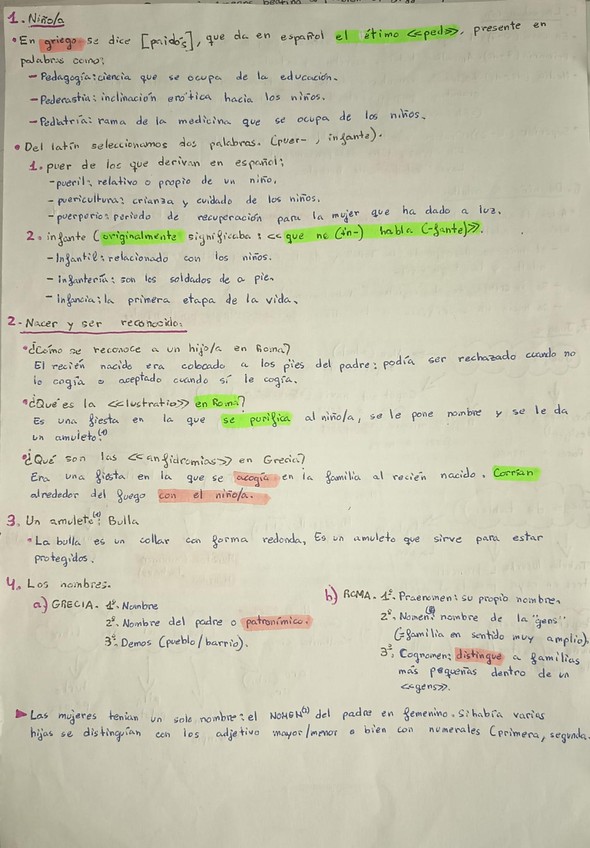 1. Niño/a
• En griego se dice [paidós], que da en español el étimo <<ped>>, presente en
palabras como:
- Pedagogía: ciencia que se ocupa de la educación.
- Pederastia: inclinación erótica hacia los niños.
- Pediatría: rama de la medicina que se ocupa de los niños.
• Del latín seleccionamos dos palabras. (puer-, infante).
1. puer de los que derivan en español:
- pueril: relativo o propio de un niño.
- puericultura: crianza y cuidado de los niños.
- puerperio: periodo de recuperación para la mujer que ha dado a luz.
2. infante (originalmente significaba: <<que no (in-) habla (-fante)>>.
- Infantil: relacionado con los niños.
- infantería: son los soldados de a pie.
- Infancia: la primera etapa de la vida.
2- Nacer y ser reconocido:
• ¿Cómo se reconoce a un hijo/a en Roma?
El recién nacido era colocado a los pies del padre: podía ser rechazado cuando no
lo cogía o aceptado cuando sí le cogía.
• ¿Qué es la <<lustratio>> en Roma?
Es una fiesta en la que se purifica al niño/a, se le pone nombre y se le da
un amuleto.
• ¿Qué son las <<anfidromías>> en Grecia?
Era una fiesta en la que se acogía en la familia al recién nacido. Corrían
alrededor del fuego con el niño/a.
3. Un amuleto: Bulla
• La bulla es un collar con forma redonda, Es un amuleto que sirve para estar
protegidos.
4. Los nombres.
a) GRECIA. 1º. Nombre
2º. Nombre del padre o patronímico.
3º. Demos (pueblo/barrio).
b) ROMA. 1º. Praenomen: su propio nombre.
2º. Nomen: nombre de la "gens"
(=familia en sentido muy amplio).
3º. Cognomen: distingue a familias
más pequeñas dentro de un
<<gens>>.
▶ Las mujeres tenían un solo nombre: el NOMEN del padre en femenino. Si había varias
hijas se distinguían con los adjetivo mayor/menor o bien con numerales (primera, segunda.